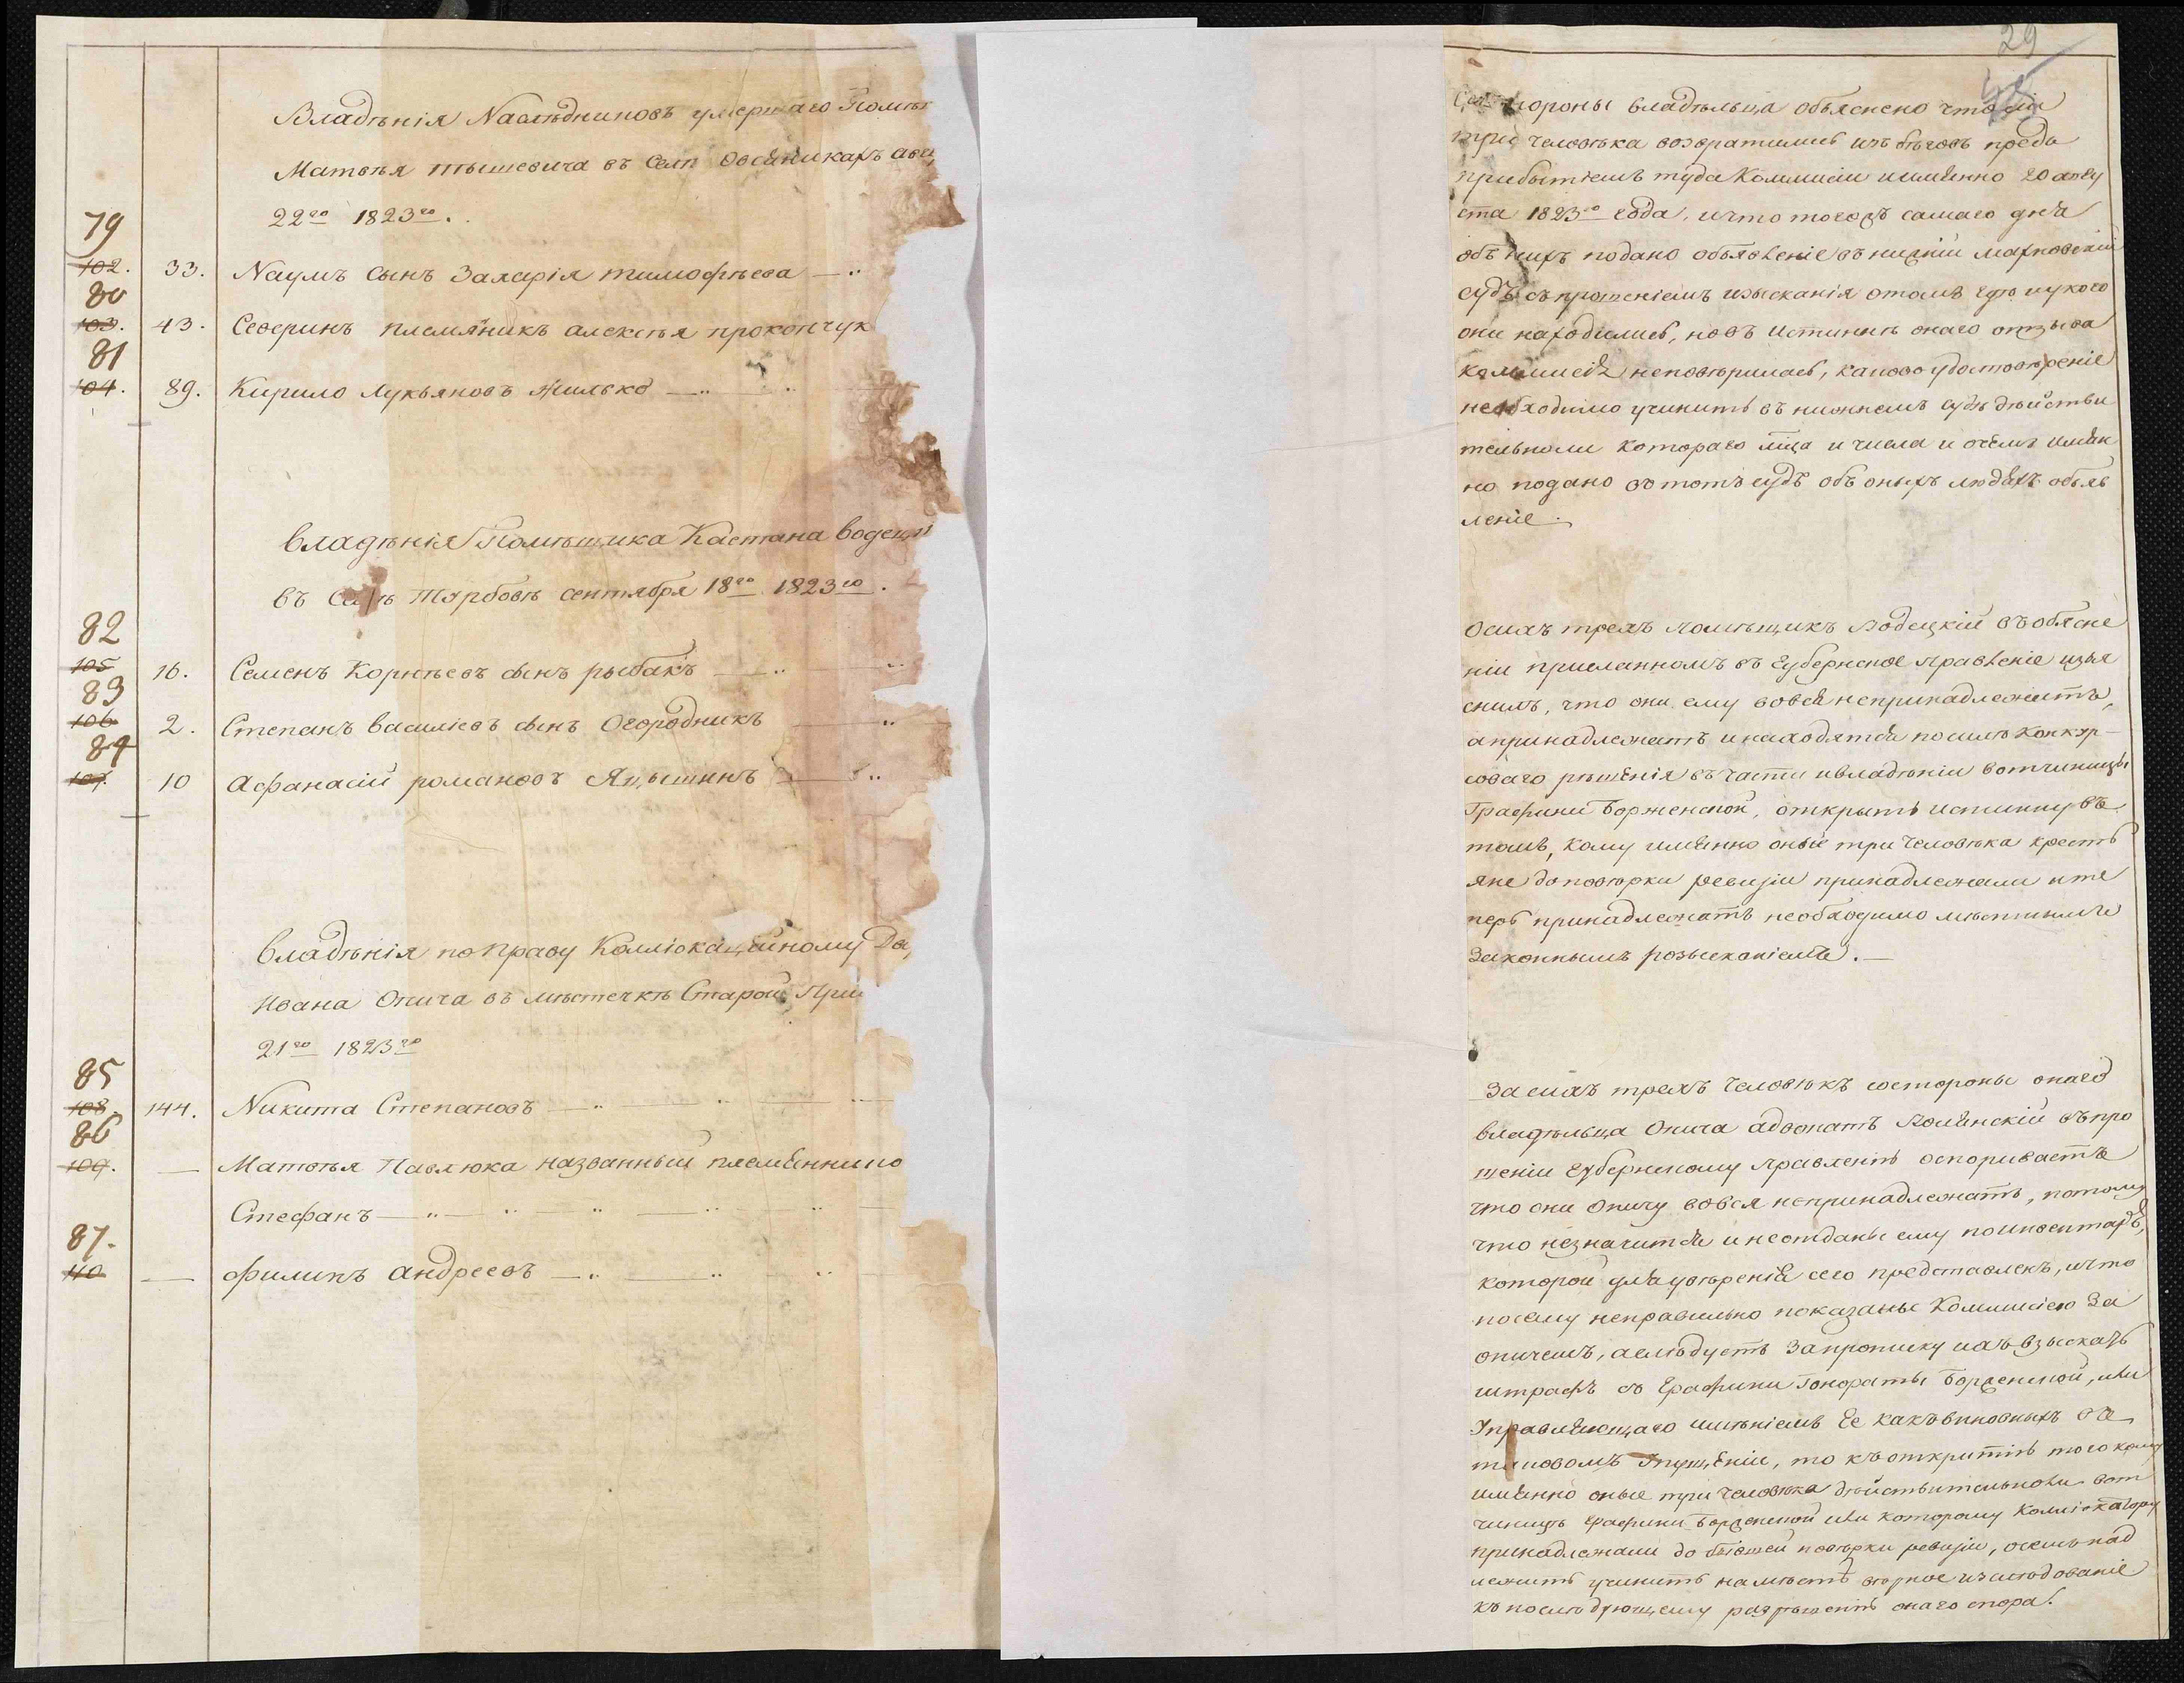 Владѣнія Наслѣдниковъ умершаго Помѣ
Матвѣя тышевича въ Селѣ Овсяникахъ авгу
22го 1823го.
79
102. 33. Наумъ сынъ Захарія тимофѣева
80
103. 43. Северинъ племяникъ алексѣя прокопчук
81
104. 89. Кирило Лукьяновъ жилько
владѣнія Помѣщика Каетана водецк
въ Селѣ Турбовѣ сентября 18го 1823го.
82
105 16. Семенъ Корнѣевъ сынъ рыбакъ
83
106 2. Степанъ василіевъ сынъ Огородникъ
84
107. 10 Афанасій романовъ Яцышинъ
владѣнія по праву Коллокаційному
Ивана Опича въ мѣстечкѣ Старой При
21го 1823го
85
108. 144. Никита Степановъ
86
109. — Матвѣя Павлюка названный племянник
Стефанъ
87.
110 — филипъ андреевъ
29
стороны владѣльца объяснено что сіи
три человѣка возвратились изъ бѣговъ предъ
прибытіемъ туда Коммисіи имянно 20 авгу
ста 1823го года, и что тогожъ самаго дня
объ нихъ подано объявленіе въ нижній махновскій
судъ съ прошеніемъ изысканія отомъ где, и у кого
они находились, но въ истиннѣ онаго отзыва
коммисія неповѣрилась, каково удостовѣреніе
необходимо учинить въ нижнемъ судѣ дѣйстви
тельноли котораго мѣца и числа и очемъ имян
но подано въ тотъ судъ объ оныхъ людяхъ объяв
леніе.
О сихъ трехъ помѣщикъ Водецкій въ обясне
ніи присланномъ въ Губернское правленіе изъя
снилъ, что они ему вовся непринадлежитъ,
а принадлежатъ и находятся по силѣ Конкур-
соваго рѣшенія въ части и владѣніи вотчинницы
Графини Борженской, открыть истинну въ
томъ, Кому имянно оные три человѣка кресть
яне до повѣрки ревизіи принадлежали и те
перь принадлежатъ необходимо мѣстнымъ
законнымъ розысканіемъ.
За сихъ трехъ человѣкъ состороны онаго
владѣльца Опича адвокатъ Волинскій въ про
шеніи Губернскому правленію оспориваетъ
что они Опичу вовся непринадлежатъ, потому
что незначится и неотданы ему по инвентарѣ,
которой для увѣренія сего представленъ, и что
посему неправильно показаны Коммисіею за
опичемъ, а слѣдуетъ за прописку ихъ взыскать
штрафъ съ Графини Гонораты Борженской, или
Управляющаго имѣніемъ Ее какъ виновныхъ въ
таковомъ Упущеніи, то къ открытію того кому
имянно оные три человѣка дѣйствительноли вот
чинницѣ Графини Борженской или которому Коллокатору
принадлежали до бывшей повѣрки ревизіи, о семъ над
лежитъ учинить на мѣстѣ вѣрное изслѣдованіе
къ послѣдующему разрѣшенію онаго спора.